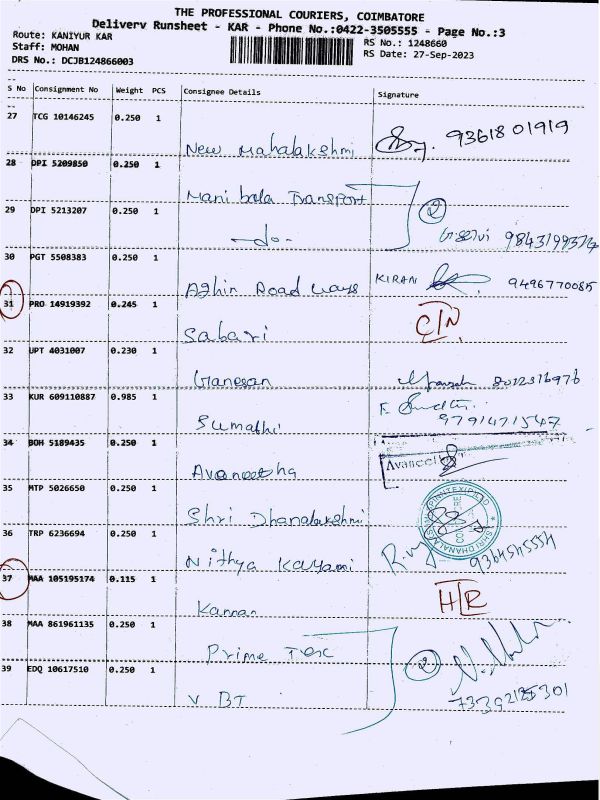 THE PROFESSIONAL COURIERS, COIMBATORE
Delivery Runsheet - KAR - Phone No.:0422-3505555 - Page No.:3
Route: KANIYUR KAR
RS No.: 1248660
Staff: MOHAN
RS Date: 27-Sep-2023
DRS No.: DCJB124866003
S No Consignment No Weight PCS Consignee Details Signature
27 TCG 10146245 0.250 1
New Mahalakshmi 93618 01919
28 DPI 5209850 0.250 1
Mani bala Transport
29 DPI 5213207 0.250 1 2
-do- 9843199374
30 PGT 5508383 0.250 1
Aghin Road ways KIRAN 9496770085
31 PRO 14919392 0.245 1
Sabari C/N
32 UPT 4031007 0.230 1
Ganesan 8012316976
33 KUR 609110887 0.985 1
Sumathi 9791471547
34 BOH 5189435 0.250 1
Avaneetha
35 MTP 5026650 0.250 1
Shri Dhanalakshmi
36 TRP 6236694 0.250 1
Nithya Kayami 9364545554
37 MAA 105195174 0.115 1
Kannan
38 MAA 861961135 0.250 1
Prime Tex
39 EDQ 10617510 0.250 1 2
V BT